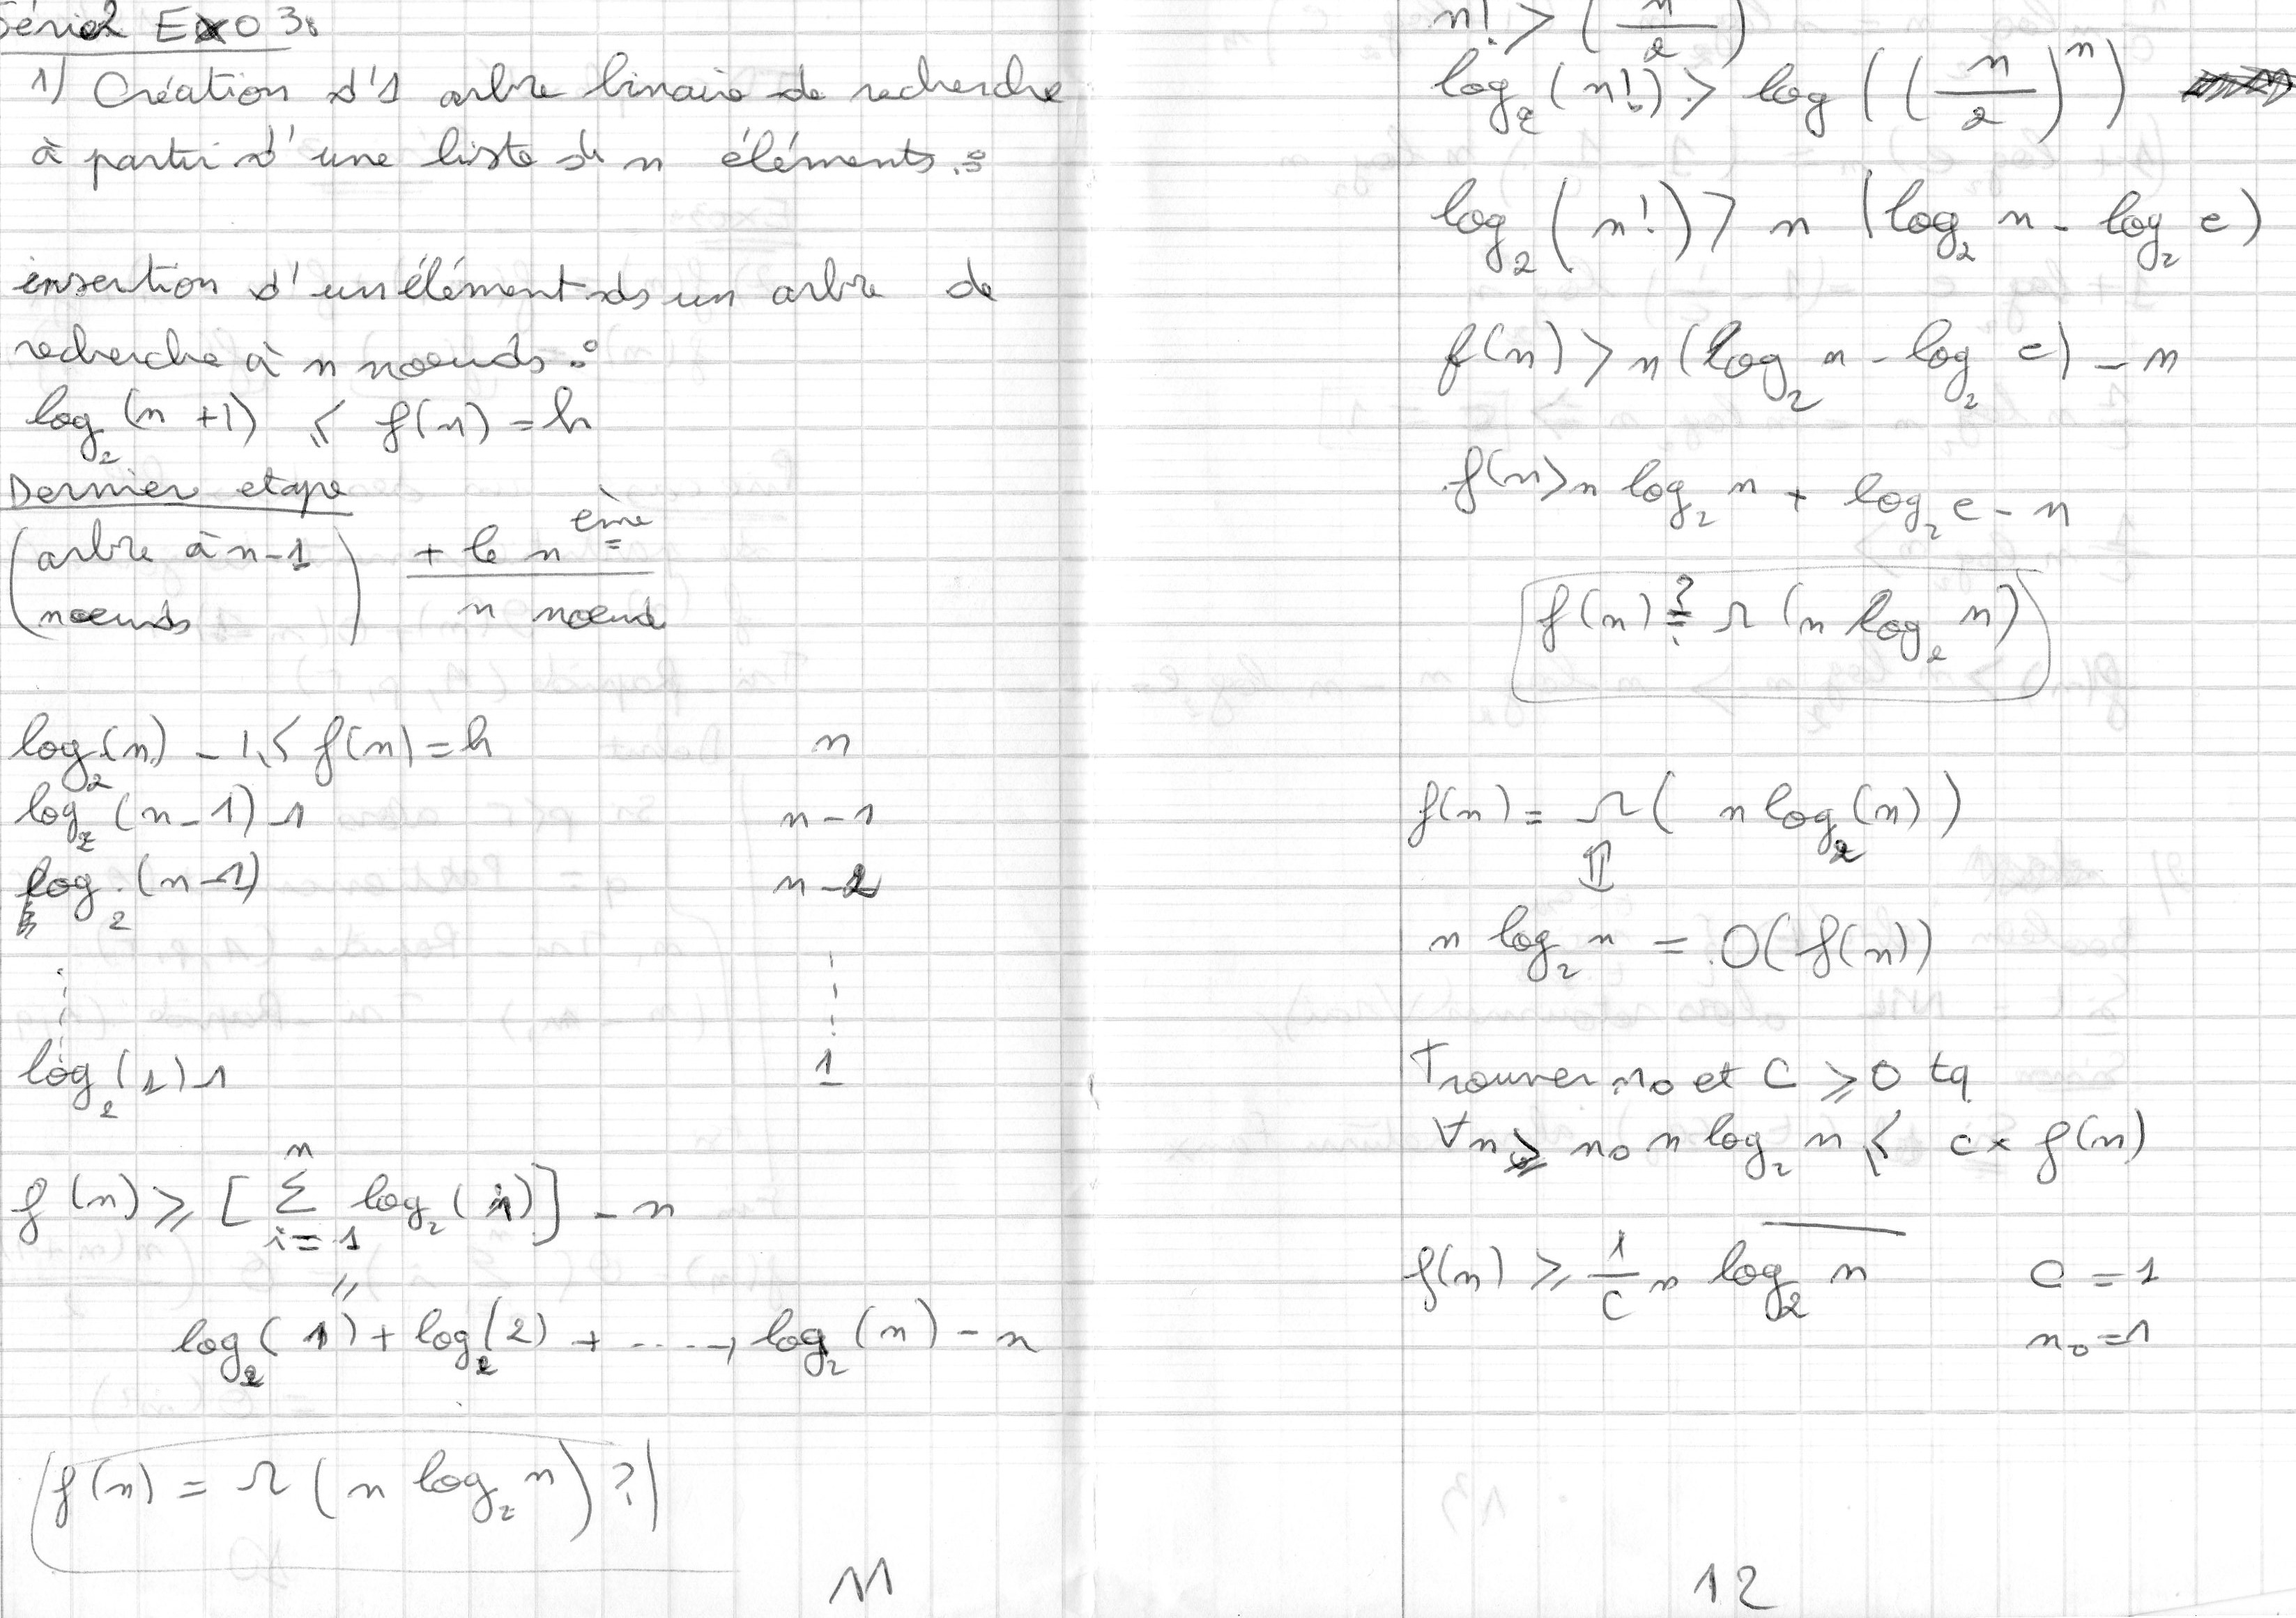 Série2 EXO 3:
1) Création d'1 arbre binaire de recherche
à partir d'une liste de n éléments :
insertion d'un élément ds un arbre de
recherche à n noeuds :
log₂(n+1) ≤ f(n) = h
Dernier etape
(arbre à n-1 noeuds) + le n ème
n noeuds
log₂(n) - 1 ≤ f(n) = h n
log₂(n-1) -1 n-1
log₂(n-1) n-2
log₂(1) -1 1
f(n) ≥ [∑ i=1 n log₂(i)] - n
"
log₂(1) + log₂(2) + ....., log₂(n) - n
f(n) = Ω(n log₂ n) ?
11
n! > (n/2)
log₂(n!) > log((n/2)ⁿ)
log₂(n!) > n (log₂ n - log₂ e)
f(n) > n(log₂ n - log₂ e) - n
f(n) > n log₂ n + log₂ e - n
f(n) ≟ Ω(n log₂ n)
f(n) = Ω( n log₂(n))
⇕
n log₂ n = O(f(n))
Trouver n₀ et C ≥ 0 tq
∀n ≥ n₀ n log₂ n ≤ c × f(n)
f(n) ≥ 1/C n log₂ n C = 1
n₀ = 1
12